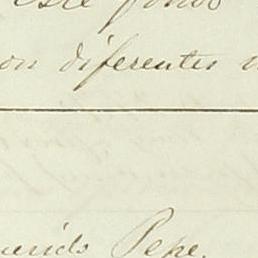 este fondo
on diferentes
uerido Pepe.